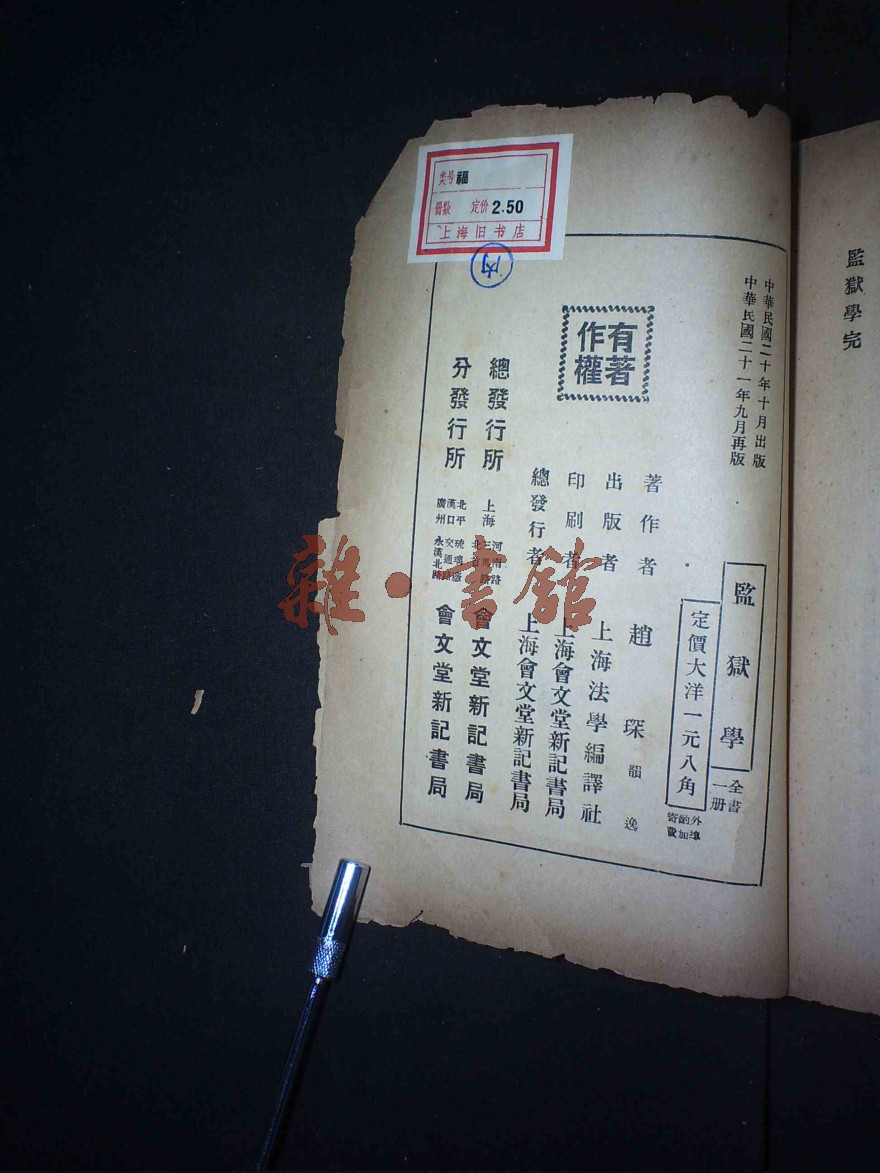 監獄學完
中華民國二十年十月出版
中華民國二十一年九月再版
監獄學
全書
一册
定價大洋一元八角
外埠
酌加
寄費
有著
作權
著作者 趙琛 韻逸
出版者 上海法學編譯社
印刷者 上海會文堂新記書局
總發行者 上海會文堂新記書局
總發行所 上海 河南路 會文堂新記書局
分發行所 北平 漢口 廣州 琉璃廠 交通路 永漢北路 會文堂新記書局
类号 福
册数 定价 2.50
上海旧书店
内
雜·書館